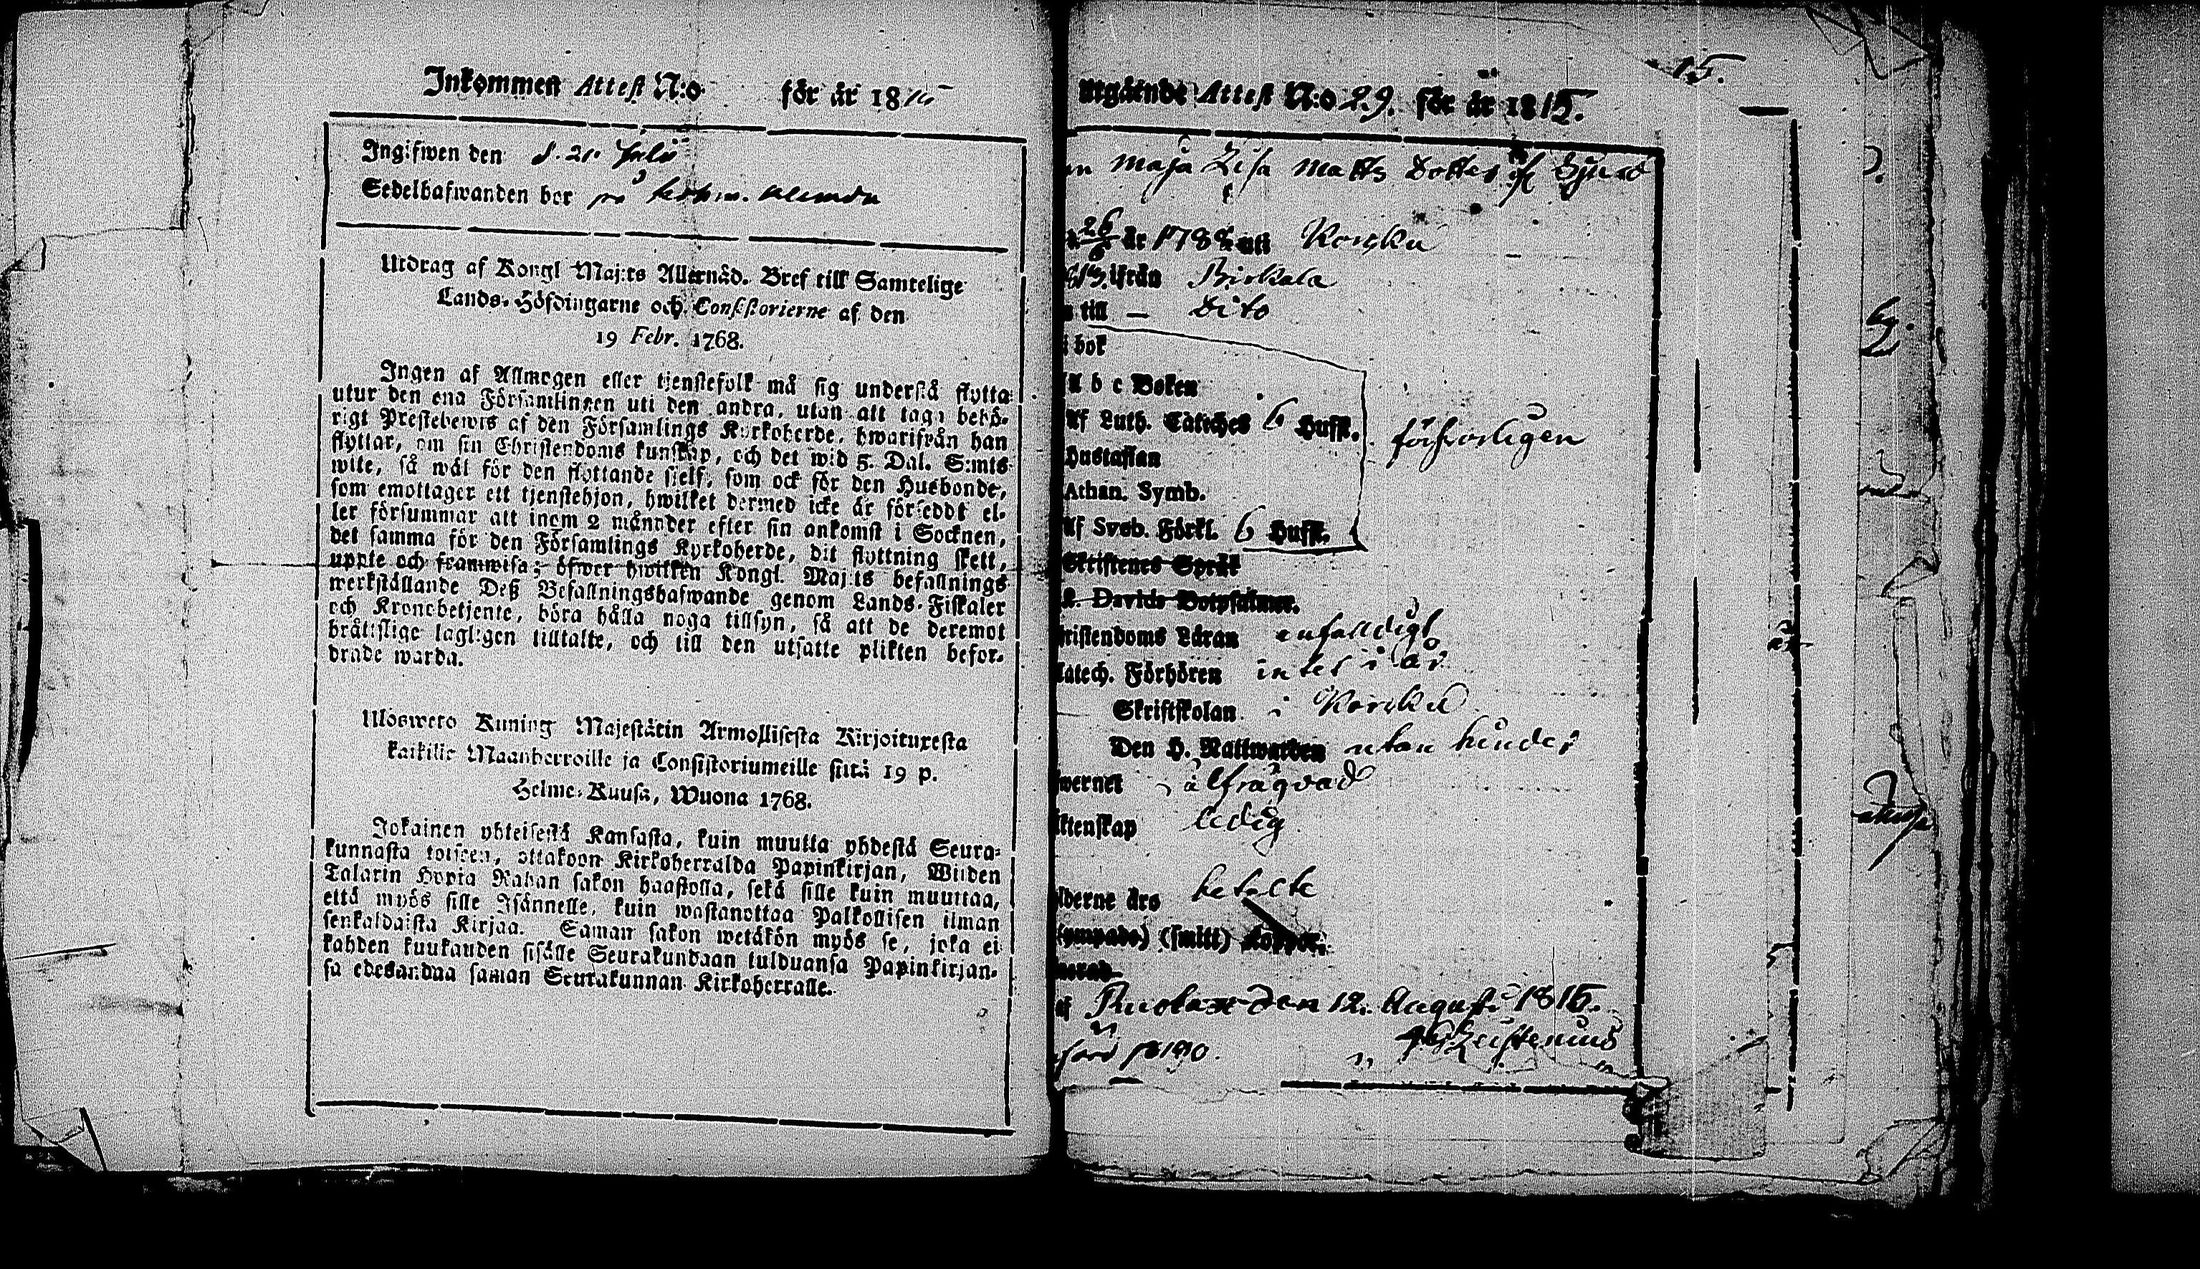 Inkommen Attest N:o för år 1815
Ingifwen den d. 21. Julii
Sedelhafwanden bor på
Utdrag af Kongl Maj:ts Allernåd. Bref till Samtelige
Lands-Höfdingarne och Consistorierne af den
19 Febr. 1768.
Ingen af Allmogen eller tjenstefolk må sig understå flytta
utur den ena Församlingen uti den andra, utan att taga behö-
rigt Prestebewis af den Församlings Kyrkoherde, hwarifrån han
flyttar, om sin Christendoms kunskap, och det wid 5. Dal. S:mts
wite, så wäl för den flyttande sjelf, som ock för den Husbonde,
som emottager ett tjenstehjon, hwilket dermed icke är förseddt el-
ler försummar att inom 2 månader efter sin ankomst i Socknen,
det samma för den Församlings Kyrkoherde, dit flyttning skett,
uppte och framwisa; öfwer hwilken Kongl. Maj:ts befallnings
werkställande Deß Befallningshafwande genom Lands-Fiskaler
och Kronobetjente, böra hålla noga tillsyn, så att de deremot
brättslige lagligen tilltalte, och till den utsatte plikten befor-
drade warda.
Ulosweto Kuning Majestätin Armollisesta Kirjoituxesta
kaikille Maanherroille ja Consistoriumeille siitä 19 p.
Helme-Kuusa, Wuona 1768.
Jokainen yhteisestä Kansasta, kuin muutta yhdestä Seura-
kunnasta toiseen, ottakoon Kirkoherralda Papinkirjan, Wiiden
Talarin Hopia Rahan sakon haastolla, sekä sille kuin muuttaa,
että myös sille Isännelle, kuin wastanottaa Palkollisen ilman
senkaldaista Kirjaa. Saman sakon wetäkön myös se, joka ei
kahden kuukauden sisälle Seurakundaan tulduansa Papinkirjan-
sa edesandaa saman Seurakunnan Kirkoherralle.
15.
Utgående Attest N:o 29. för år 1815.
Maja Lisa Matts Dotter
26 år 1788 uti Karkku
ifrån Birkala
till — Dito
i bok
A b c Boken
Af Luth. Catiches 6 Hufst.
försvarligen
Hustaflan
Athan. Symb.
Af Sveb. Förkl. 6 Hufst.
Skriftenes Språk
K. Davids Botpsalmer.
ristendoms Läran enfalldigt
atech. Förhören intet i år
Skriftskolan i Karkku
Den H. Nattwarden utan hinder
wernet oälfrägvad
ktenskap ledig
lderne äro betalte
(ympade) (smitt) Koppor.
nerad
af den 12. Augusti 1815.